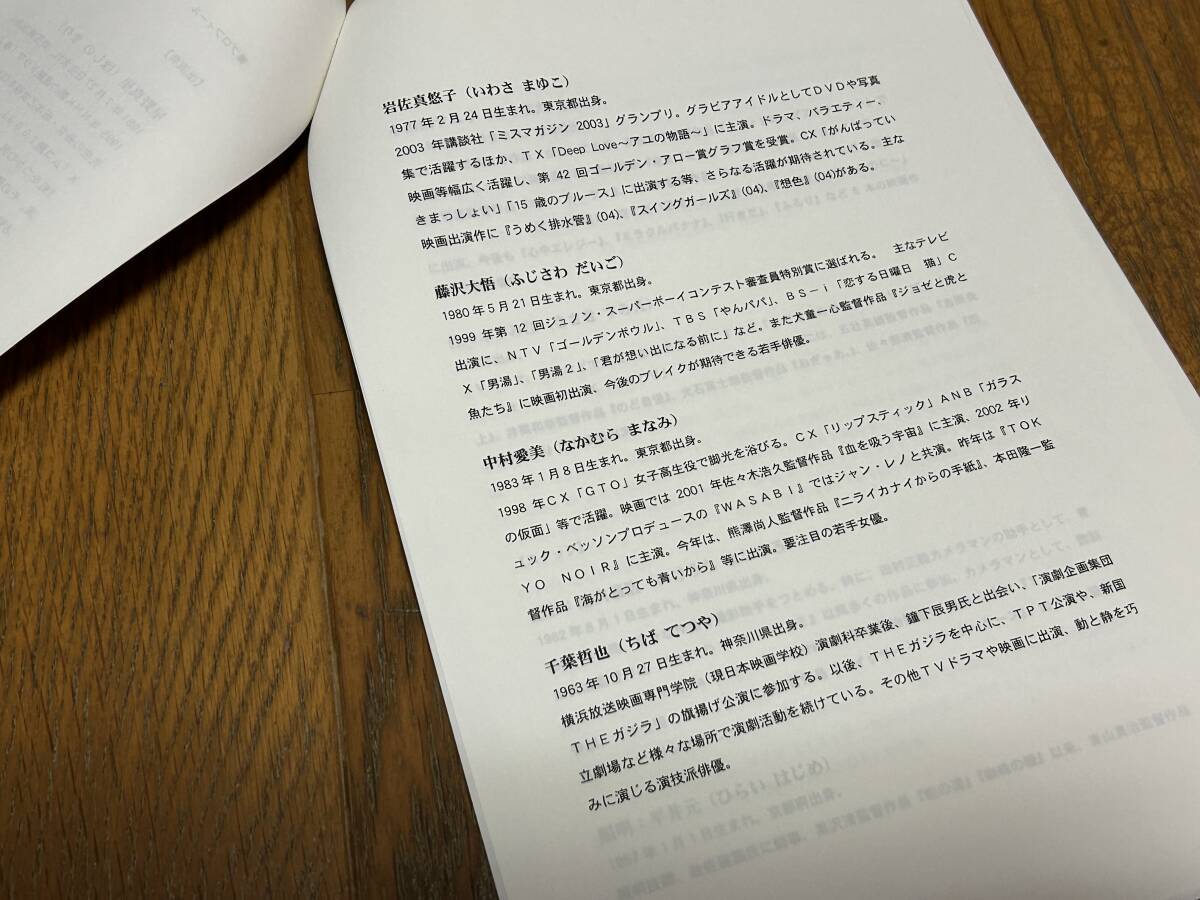 岩佐真悠子（いわさ まゆこ）
1977年2月24日生まれ。東京都出身。
2003 年講談社「ミスマガジン 2003」グランプリ。グラビアアイドルとしてＤＶＤや写真
集で活躍するほか、ＴＸ「Deep Love～アユの物語～」に主演。ドラマ、バラエティー、
映画等幅広く活躍し、第 42 回ゴールデン・アロー賞グラフ賞を受賞。CX「がんばってい
きまっしょい」「15 歳のブルース」に出演する等、さらなる活躍が期待されている。主な
映画出演作に『うめく排水管』(04)、『スイングガールズ』(04)、『想色』(04)がある。
藤沢大悟（ふじさわ だいご）
1980年5月21日生まれ。東京都出身。
1999 年第 12 回ジュノン・スーパーボーイコンテスト審査員特別賞に選ばれる。 主なテレビ
出演に、ＮＴＶ「ゴールデンボウル」、ＴＢＳ「やんパパ」、ＢＳ－ｉ「恋する日曜日 猫」Ｃ
Ｘ「男湯」、「男湯２」、「君が想い出になる前に」など。また犬童一心監督作品『ジョゼと虎と
魚たち』に映画初出演、今後のブレイクが期待できる若手俳優。
中村愛美（なかむら まなみ）
1983年1月8日生まれ。東京都出身。
1998 年ＣＸ「ＧＴＯ」女子高生役で脚光を浴びる。ＣＸ「リップスティック」ＡＮＢ「ガラス
の仮面」等で活躍。映画では 2001 年佐々木浩久監督作品『血を吸う宇宙』に主演、2002 年リ
ュック・ベッソンプロデュースの『ＷＡＳＡＢＩ』ではジャン・レノと共演。昨年は『ＴＯＫ
ＹＯ ＮＯＩＲ』に主演。今年は、熊澤尚人監督作品『ニライカナイからの手紙』、本田隆一監
督作品『海がとっても青いから』等に出演。要注目の若手女優。
千葉哲也（ちば てつや）
1963年10月27日生まれ。神奈川県出身。
横浜放送映画専門学院（現日本映画学校）演劇科卒業後、鐘下辰男氏と出会い、「演劇企画集団
ＴＨＥガジラ」の旗揚げ公演に参加する。以後、ＴＨＥガジラを中心に、ＴＰＴ公演や、新国
立劇場など様々な場所で演劇活動を続けている。その他ＴＶドラマや映画に出演、動と静を巧
みに演じる演技派俳優。